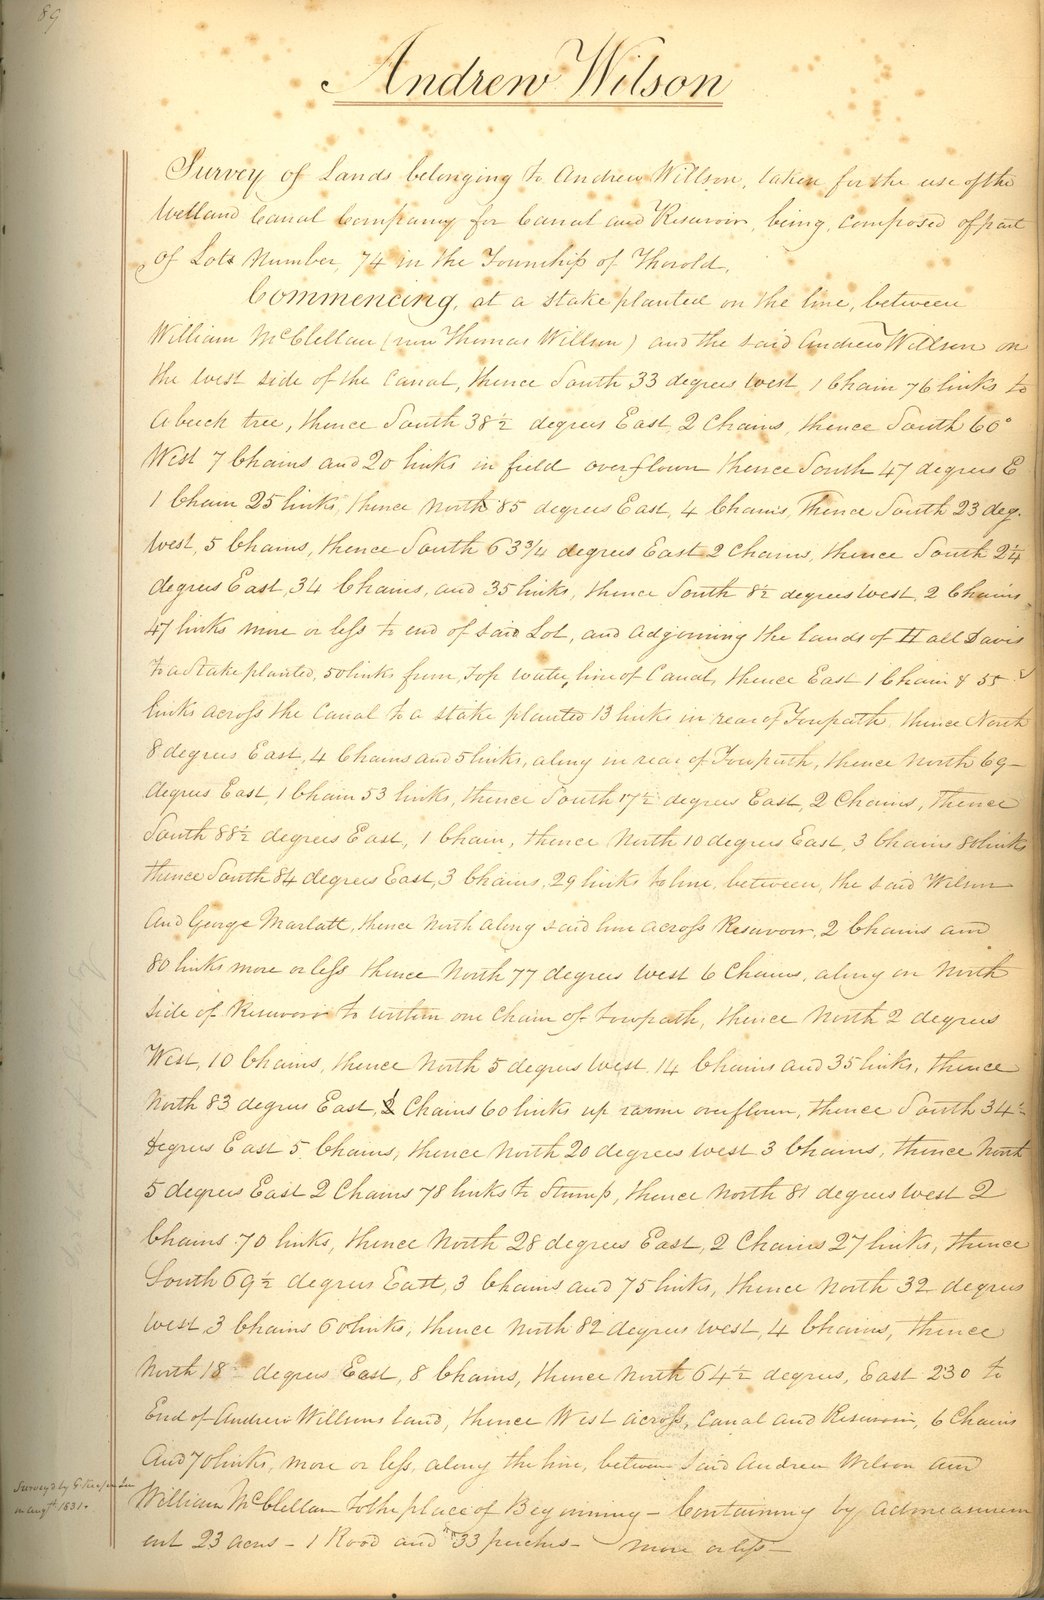 89
Andrew Wilson
Survey of Lands belonging to Andrew Willson, taken for the use of the
Welland Canal Company for Canal and Reservoir, being, composed of part
of Lots Number, 74 in the Township of Thorold,
Commencing, at a stake planted on the line, between
William McClellan (now Thomas Willson) and the said Andrew Willson on
the West side of the Canal, thence South 33 degrees West 1 Chain 76 links to
a beech tree, thence South 38½ degrees East, 2 Chains, thence South 60°
West 7 Chains and 20 links in field overflown thence South 47 degrees E
1 Chain 25 links, thence North 85 degrees East, 4 Chains, Thence South 23 deg.
West, 5 Chains, thence South 63¾ degrees East 2 Chains, thence South 2¼
degrees East, 34 Chains, and 35 links, thence South 8½ degrees West, 2 Chains
47 links more or less to end of said Lot, and adjoining the lands of Hall Davis
to a Stake planted, 50 links from, top water, line of Canal, thence East 1 Chain & 55
links across the Canal to a stake planted 13 links in rear of Towpath, thence North
8 degrees East, 4 Chains and 5 links, along in rear of Towpath, thence North 69
degrees East, 1 Chain 53 links, thence South 17½ degrees East, 2 Chains, thence
South 88½ degrees East, 1 Chain, thence North 10 degrees East, 3 Chains 80 links
thence South 84 degrees East, 3 Chains, 29 links to line, between, the said Wilson
And George Marlatt, thence North along said line across Reservoir, 2 Chains and
80 links more or less thence North 77 degrees West 6 Chains, along on North
side of Reservoir to within one Chain of towpath, thence North 2 degrees
West, 10 Chains, thence North 5 degrees West 14 Chains and 35 links, thence
North 83 degrees East, Chains 60 links up ravine overflown, thence South 34½
degrees East 5 Chains, thence North 20 degrees West 3 Chains, thence North
5 degrees East 2 Chains 78 links to Stump, thence North 81 degrees West 2
Chains 70 links, thence North 28 degrees East, 2 Chains 27 links, thence
South 69½ degrees East, 3 Chains and 75 links, thence North 32 degrees
West 3 Chains 60 links, thence North 82 degrees West, 4 Chains, thence
North 18 degrees East, 8 Chains, thence North 64½ degrees, East 230 to
End of Andrew Willsons land, thence West across, Canal and Reservoir, 6 Chains
And 70 links, more or less, along the line, between said Andrew Wilson and
William McClellan to the place of Beginning – Containing by admeasurem
ent 23 acres – 1 Rood and 33 perches – more or less –
Surveyd by G. Keefer Jun
in Augt 1831.